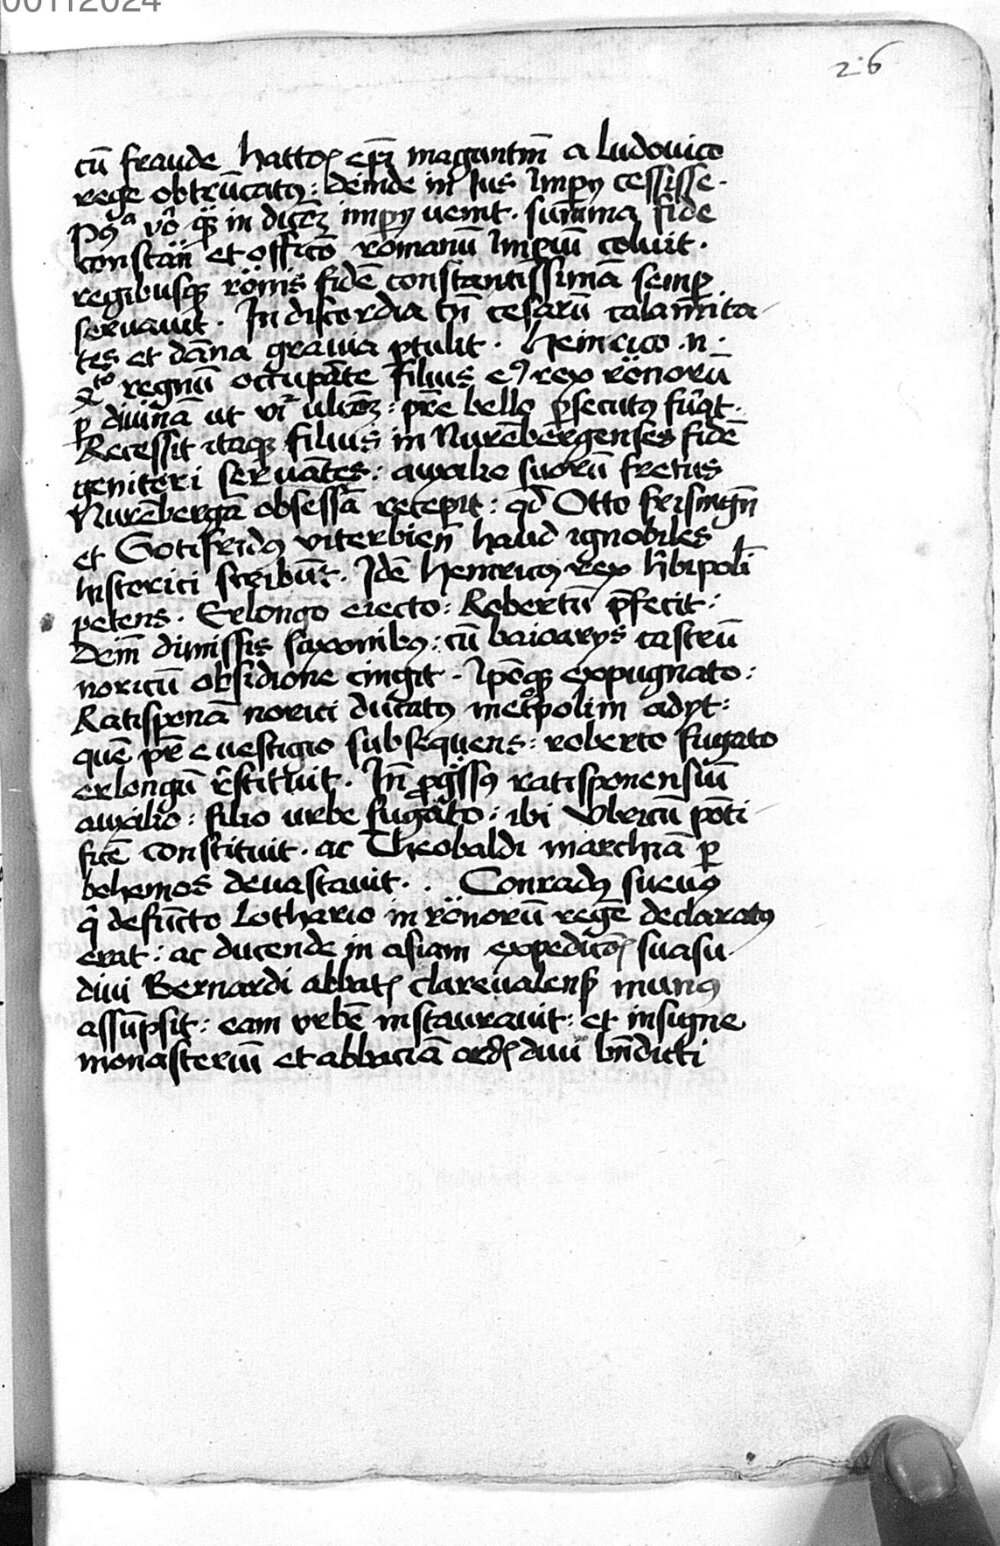 00112024
26
cū fraude hattoꝭ epī maguntiñ a Ludovico
rege obtrūcatꝯ : deinde in Jus Impij cessisse .
Pꝰqᵃ vo᷒ in dicōeꝫ impij uenit . summa fide
constāñ et officō romanū Impiū coluit .
regibusqꝫ röm̄is fidē constantissimā semp
servavit . In discordia tñ cesarū calam̄ita
tes et dāna gravia ꝑtulit . Heinrico .n.
qͬto regnū occupāte filius eꝰ rex römorū
ꝑ diviñā ut vr̄ ulcōeꝫ : pr̄e bello ꝑsecutꝯ fūat .
Recessit itaqꝫ filius in Nurēbergenses fidē
genitori servātes : auxilio suorū fretus
Nurēbergā obsessā recepit : qd̄ Otto frisingñ
et Gotifridꝯ viterbieñ haud ignobiles
historici scribūt . Idē Henricꝯ rex h̄bipolī
petens . Erlongo eiecto : Robertū p̄fecit :
Deiñ dimissis saxonibꝯ : cū baioarijs castrū
noricū obsidione cingit . Ipōqꝫ expugnato :
Ratisponā norici ducatꝯ metᵒpolim adijt :
quē pr̄ e vestigio subsequens : roberto fugato
erlongū r̄stituit . Iñ ꝓgᵢssꝯ ratisponensiū
auxilio : filio urbe fugāto : ibi Vlricū pōti
ficē constituit . ac Theobaldi marchiā ꝑ
behemos devastavit . . Conradꝯ suevꝯ
qͥ defūcto Lothario in römorū regē declaratꝯ
erat : ac ducende in asiam expedicōꝭ suasu
divi Bernardi abbatꝭ clarevalensꝭ munꝯ
assūpsit : eam vrbē instauravit : et insigne
monasteriū et abbaciā ordꝭ divi bñdicti